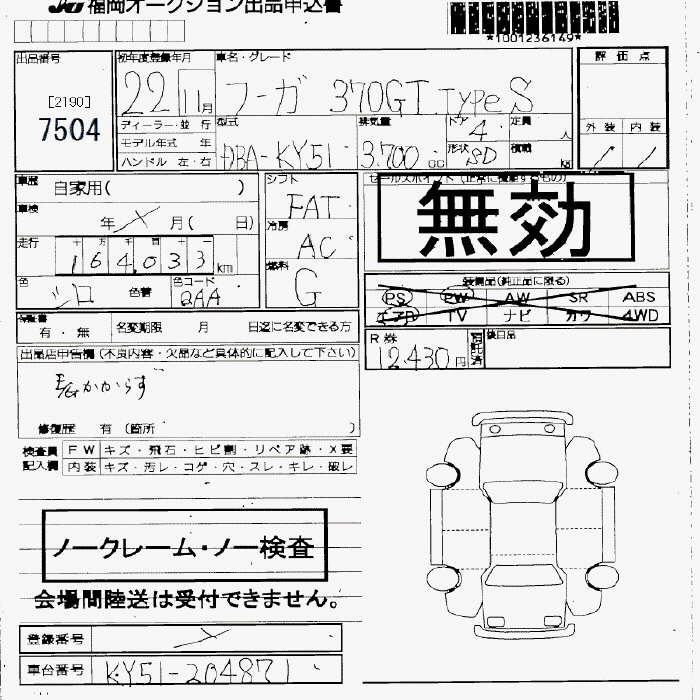 JU 福岡オークション出品申込書
*1001236149*
出品番号
[2190]
7504
初年度登録年月
22 11月
車名・グレード
フーガ 370GT TYPE S
ディーラー・並行
モデル年式 年
ハンドル 左・右
型式
DBA-KY51
排気量
3.700 CC
ドア 4
形状 SD
定員 人
積載 kg
評価点
外装 内装
車歴 自家用( )
車検 年 月( 日)
走行
十 万 千 百 十 一
164,033 km
色 シロ 色替
色コード
2AA
シフト
FAT
冷房
AC
燃料
G
セールスポイント (正常に機能するもの)
無効
装備品(純正品に限る)
PS PW AW SR ABS
エアB TV ナビ カワ 4WD
保証書
有・無
名変期限 月 日迄に名変できる方
R券
12,430円
預託済
後日品
出品店申告欄(不良内容・欠品など具体的に記入して下さい)
E/gかからず
修復歴 有(箇所 )
検査員 FW キズ・飛石・ヒビ割・リペア跡・X要
記入欄 内装 キズ・汚レ・コゲ・穴・スレ・キレ・破レ
ノークレーム・ノー検査
会場間陸送は受付できません。
登録番号
車台番号 KY51-204871